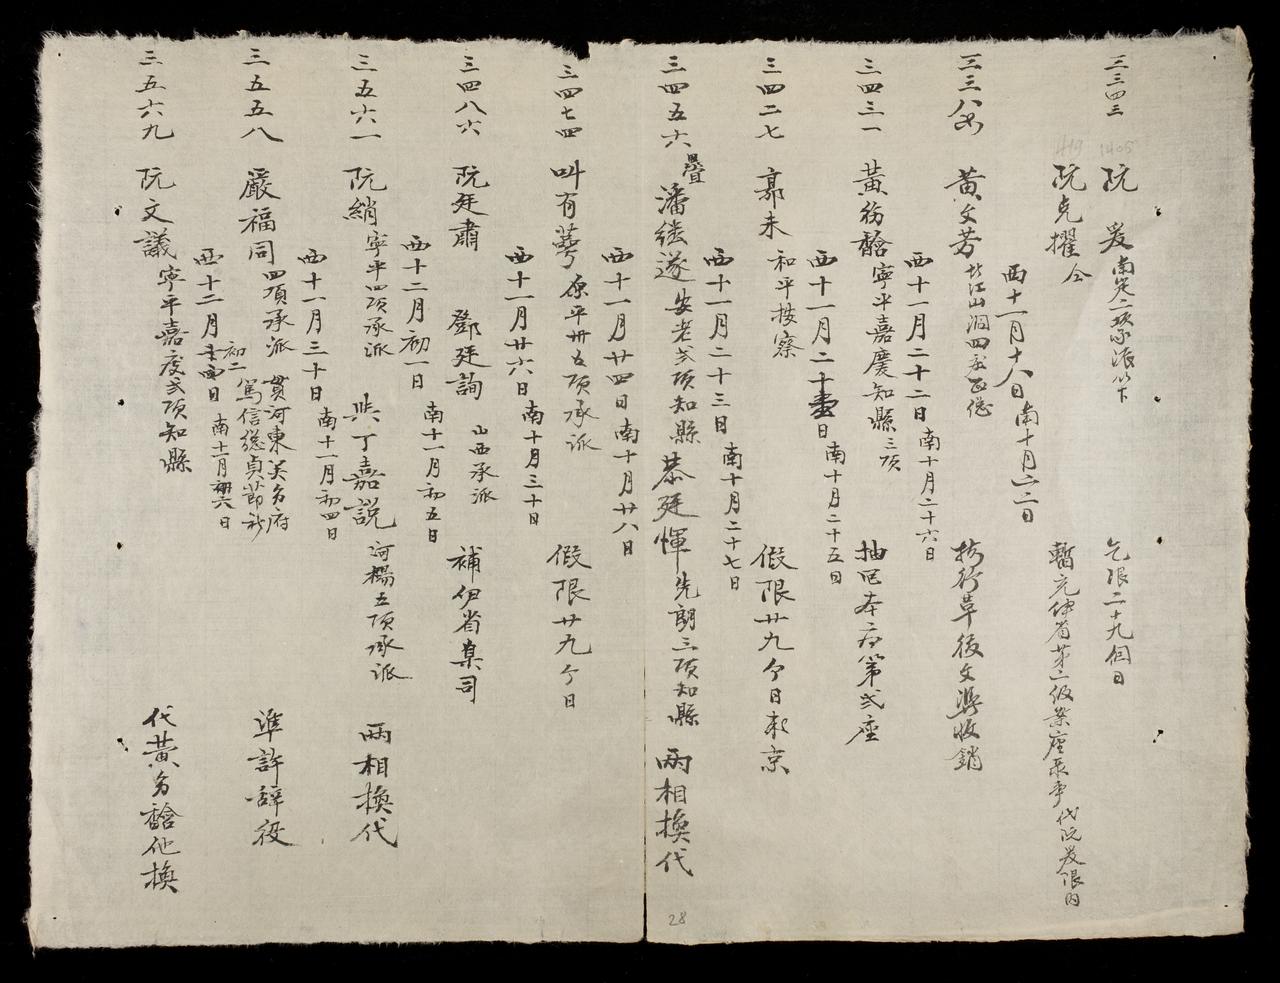 三三四三 阮爰 南定二項承派以下 乞限二十九個日
阮克擢 仝 暫充伊省第二級案座录事代阮爰限内
1405
419
西十一月十八日 南十月二十二日
黃文芳 北江山洞四項正總 執行草後文憑收銷
西十一月二十二日 南十月二十六日
三四三一 黃務馠 寧平嘉慶知縣三項 抽回本府第弍座
西十一月二十壹日 南十月二十五日
三四二七 郭未 和平按察 假限廿九个日来京
西十一月二十三日 南十月二十七日
三四五六 疊 潘継遂 安老弍項知縣 恭廷惲 先朗三項知縣 兩相換代
西十一月廿四日 南十月廿八日
三四七四 叫有蕚 原平卅五項承派 假限廿九个日
西十一月廿六日 南十月三十日
三四八六 阮廷肅 鄧廷詢 山西承派 補伊省臬司
西十二月初一日 南十一月初五日
三五六一 阮綃 寧平四項承派 共丁嘉説 河楊五項承派 兩相換代
西十一月三十日 南十一月初四日
三五五八 嚴福同 四項承派 貫河東 府篤信總貞節社 準許辞役
西十二月初二日 南十一月初六日
三五六九 阮文議 寧平嘉慶弍項知縣 代黃務馠他換
28